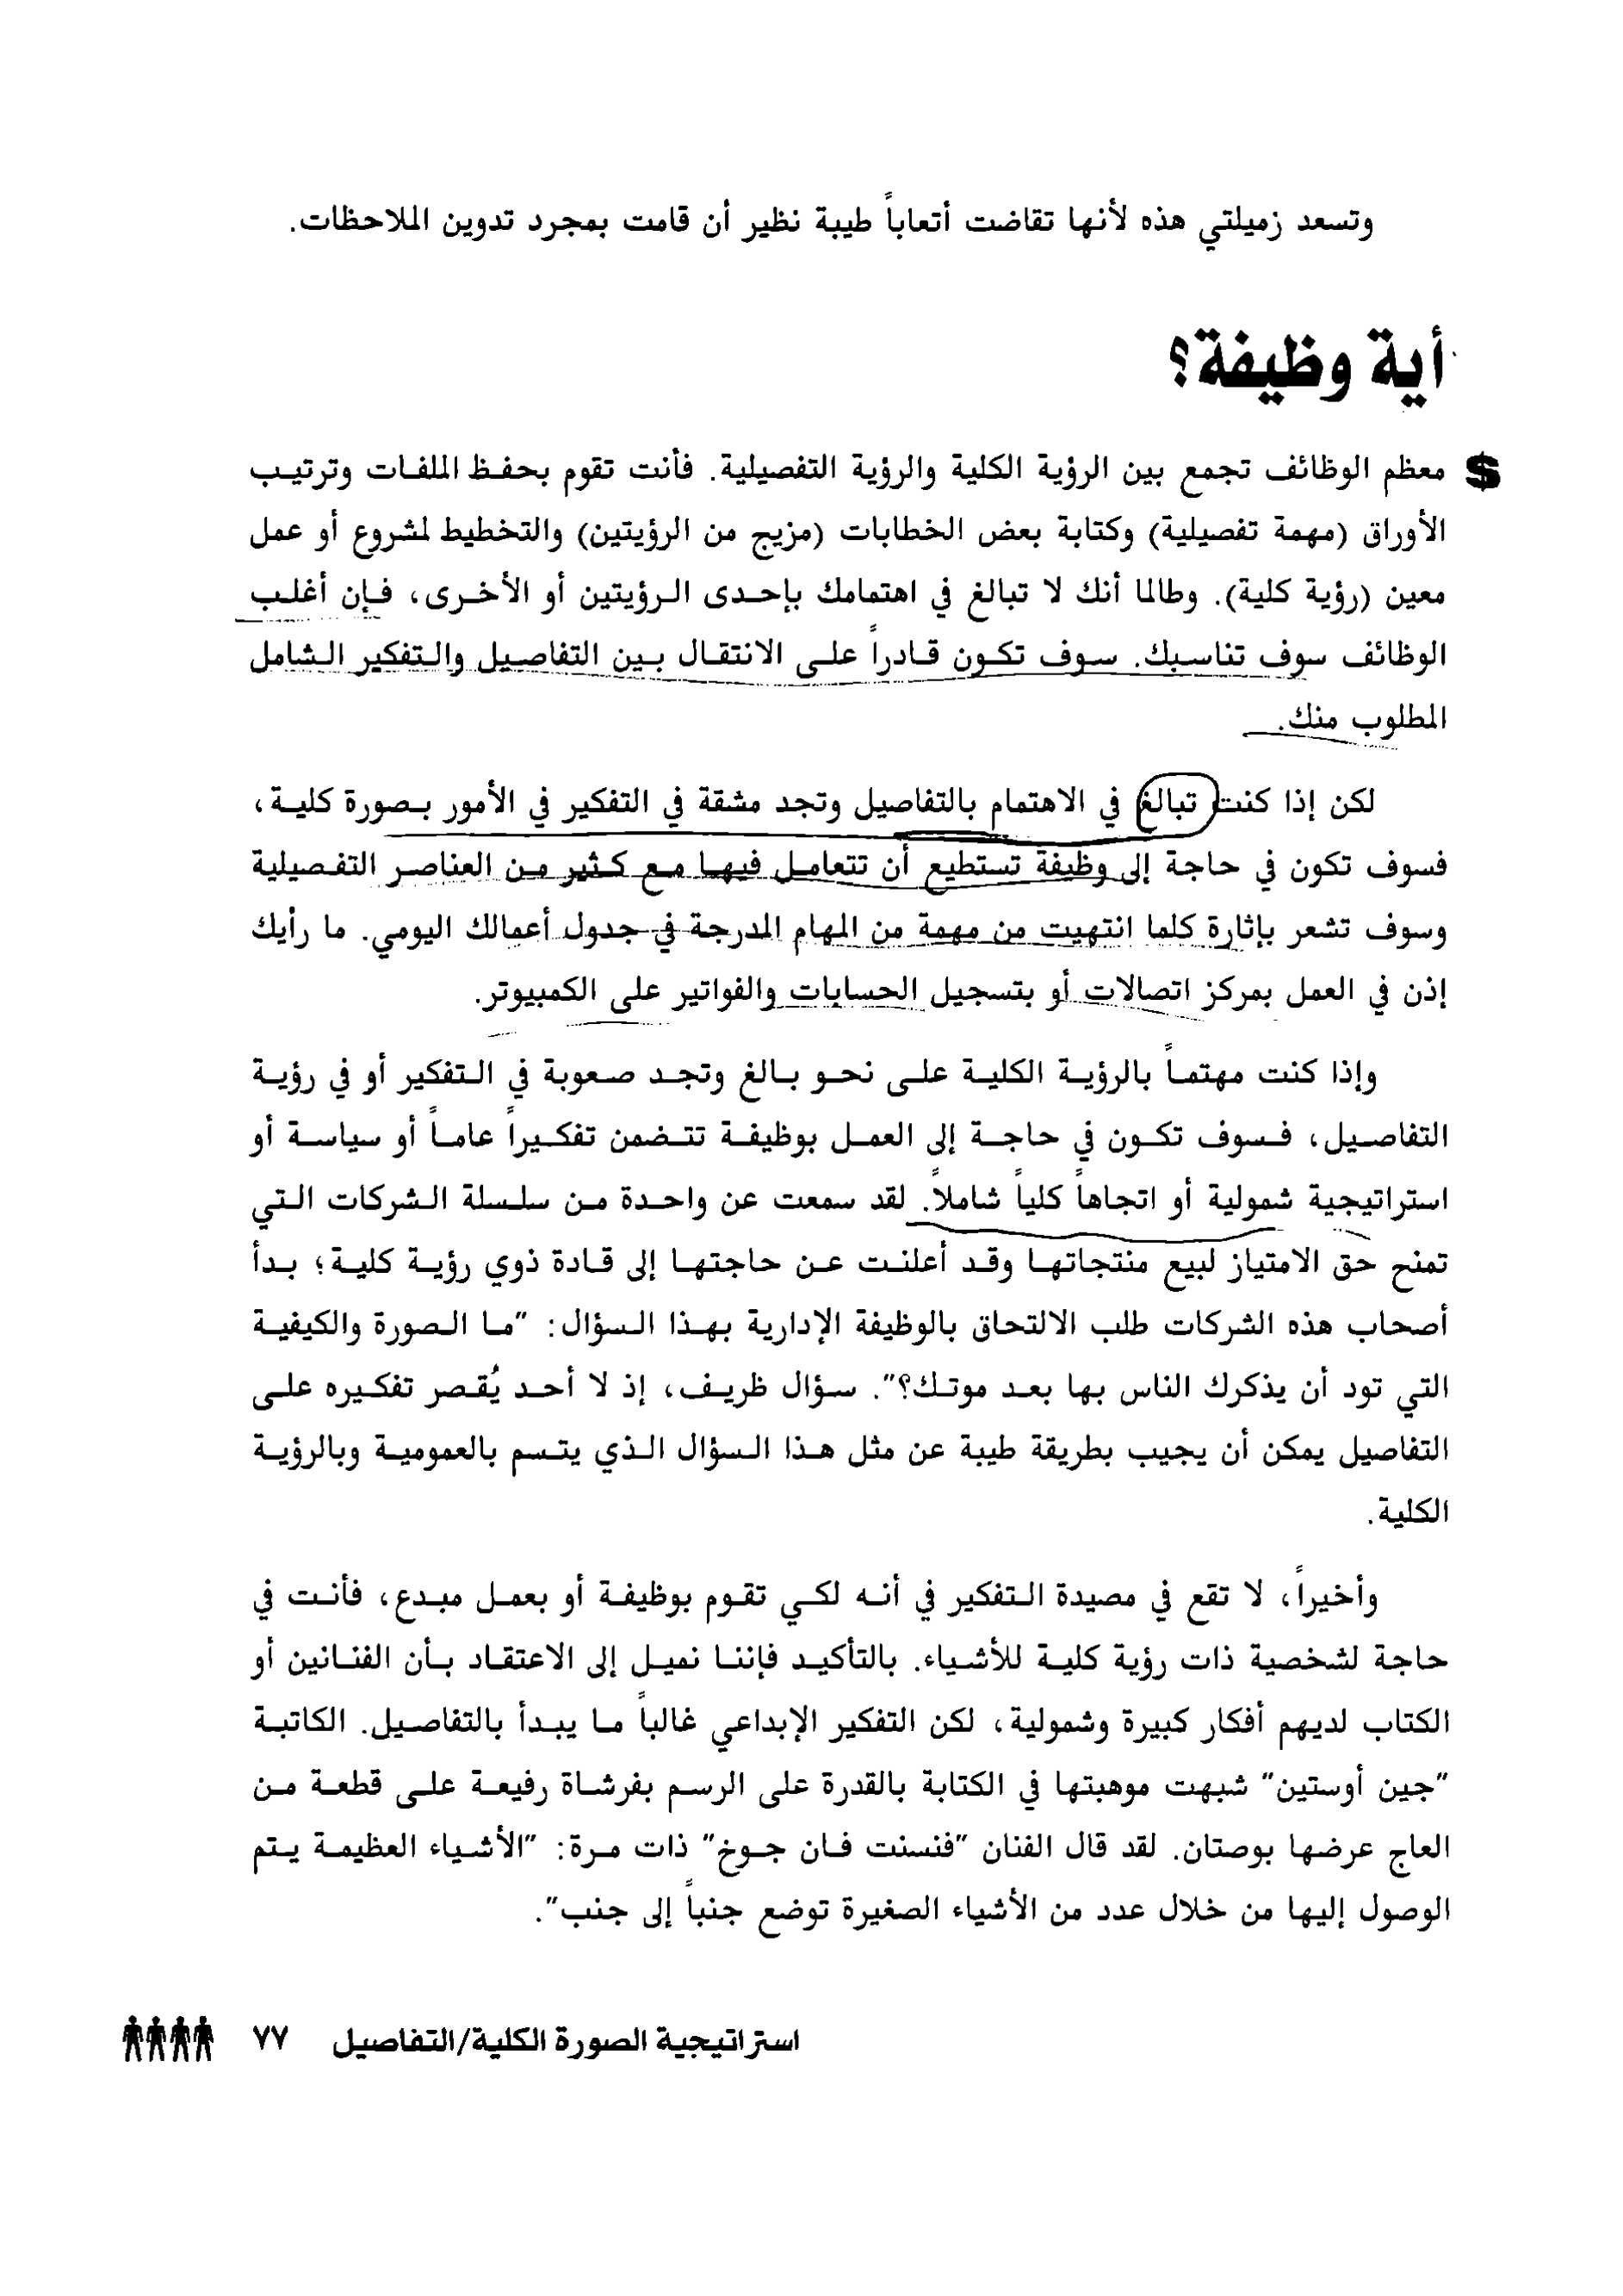 وتسعد زميلتي هذه لأنها تقاضت أتعاباً طيبة نظير أن قامت بمجرد تدوين الملاحظات.
أية وظيفة؟
$ معظم الوظائف تجمع بين الرؤية الكلية والرؤية التفصيلية. فأنت تقوم بحفظ الملفات وترتيب
الأوراق (مهمة تفصيلية) وكتابة بعض الخطابات (مزيج من الرؤيتين) والتخطيط لمشروع أو عمل
معين (رؤية كلية). وطالما أنك لا تبالغ في اهتمامك بإحدى الرؤيتين أو الأخرى، فإن أغلب
الوظائف سوف تناسبك. سوف تكون قادراً على الانتقال بين التفاصيل والتفكير الشامل
المطلوب منك.
لكن إذا كنت تبالغ في الاهتمام بالتفاصيل وتجد مشقة في التفكير في الأمور بصورة كلية،
فسوف تكون في حاجة إلى وظيفة تستطيع أن تتعامل فيها مع كثير من العناصر التفصيلية
وسوف تشعر بإثارة كلما انتهيت من مهمة من المهام المدرجة في جدول أعمالك اليومي. ما رأيك
إذن في العمل بمركز اتصالات أو بتسجيل الحسابات والفواتير على الكمبيوتر.
وإذا كنت مهتماً بالرؤية الكلية على نحو بالغ وتجد صعوبة في التفكير أو في رؤية
التفاصيل، فسوف تكون في حاجة إلى العمل بوظيفة تتضمن تفكيراً عاماً أو سياسة أو
استراتيجية شمولية أو اتجاهاً كلياً شاملاً. لقد سمعت عن واحدة من سلسلة الشركات التي
تمنح حق الامتياز لبيع منتجاتها وقد أعلنت عن حاجتها إلى قادة ذوي رؤية كلية؛ بدأ
أصحاب هذه الشركات طلب الالتحاق بالوظيفة الإدارية بهذا السؤال: "ما الصورة والكيفية
التي تود أن يذكرك الناس بها بعد موتك؟". سؤال ظريف، إذ لا أحد يُقصر تفكيره على
التفاصيل يمكن أن يجيب بطريقة طيبة عن مثل هذا السؤال الذي يتسم بالعمومية وبالرؤية
الكلية.
وأخيراً، لا تقع في مصيدة التفكير في أنه لكي تقوم بوظيفة أو بعمل مبدع، فأنت في
حاجة لشخصية ذات رؤية كلية للأشياء. بالتأكيد فإننا نميل إلى الاعتقاد بأن الفنانين أو
الكتاب لديهم أفكار كبيرة وشمولية، لكن التفكير الإبداعي غالباً ما يبدأ بالتفاصيل. الكاتبة
"جين أوستين" شبهت موهبتها في الكتابة بالقدرة على الرسم بفرشاة رفيعة على قطعة من
العاج عرضها بوصتان. لقد قال الفنان "فنسنت فان جوخ" ذات مرة: "الأشياء العظيمة يتم
الوصول إليها من خلال عدد من الأشياء الصغيرة توضع جنباً إلى جنب".
استراتيجية الصورة الكلية/التفاصيل ٧٧